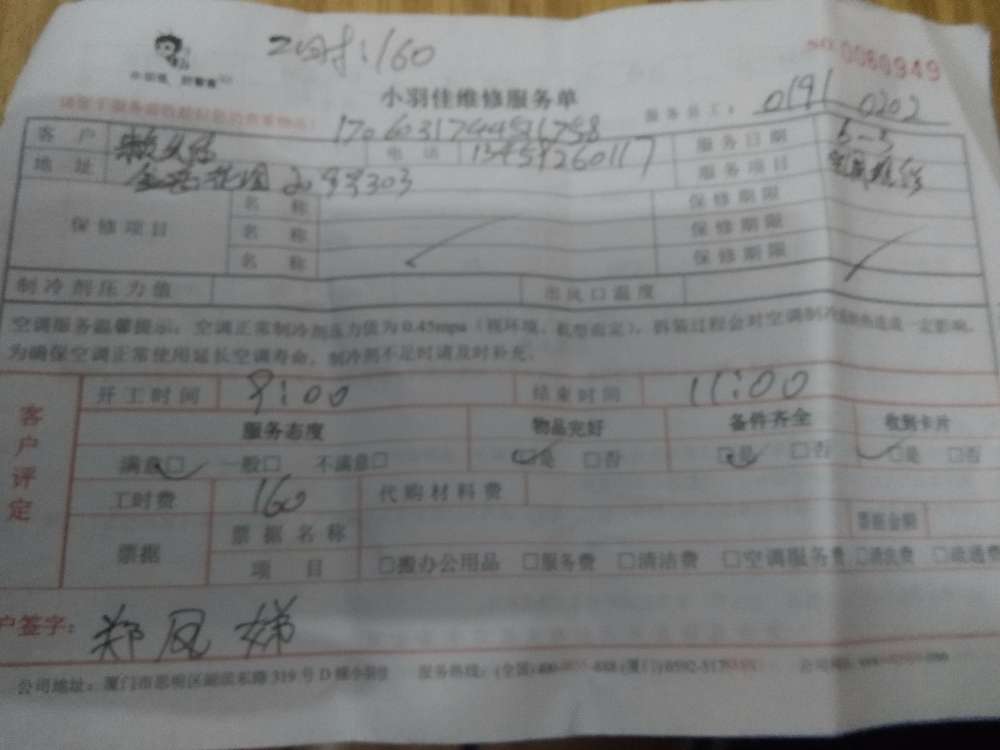 :160
NO 0069949
小羽佳维修服务单
服务员工: 0191 0202
170603174451758
客户 电话 13459260117 服务日期 6-3
地址 303 服务项目
保修项目 名称 保修期限
名称 保修期限
名称 保修期限
制冷剂压力值 出风口温度
空调服务温馨提示:空调正常制冷剂压力值为0.45mpa(视环境、机型而定),拆装过程会对空调制冷 造成一定影响,
为确保空调正常使用延长空调寿命,制冷剂不足时请及时补充。
客户评定
开工时间 9:00 结束时间 11:00
服务态度 物品完好 备件齐全 收到卡片
满意□ 一般□ 不满意□ □是 □否 □是 □否 □是 □否
工时费 160 代购材料费
票据 票据名称 票据金额
项目 □搬办公用品 □服务费 □清洁费 □空调服务费 □清洗费 □疏通费
户签字: 郑凤娣
公司地址:厦门市思明区湖滨东路319号D 服务热线:(全国)400 (厦门)0592-517